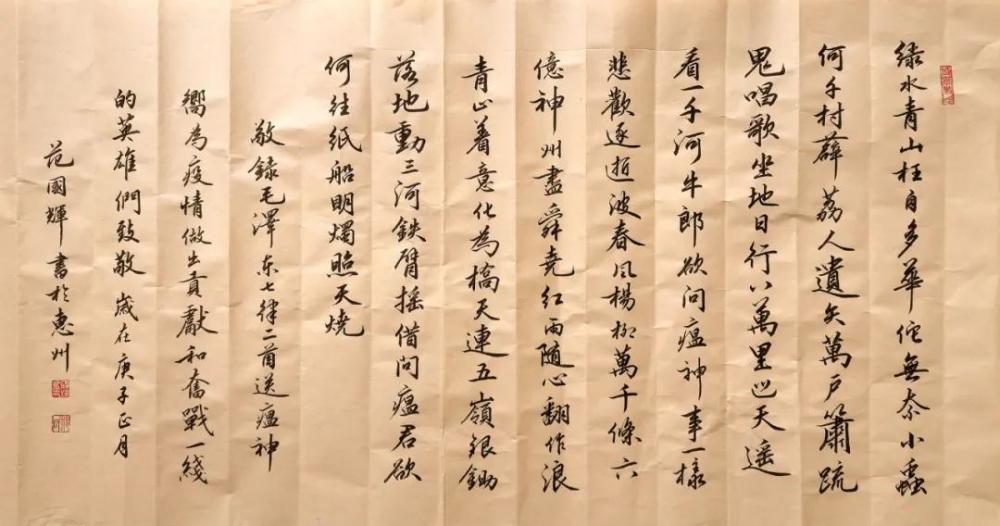 緑水青山枉自多華佗無奈小蟲
何千村薜荔人遺矢萬戶簫疏
鬼唱歌坐地日行八萬里巡天遥
看一千河牛郎欲問瘟神事一樣
悲歡逐逝波春風楊柳萬千條六
億神州盡舜堯紅雨隨心翻作浪
青山着意化為橋天連五嶺銀鋤
落地動三河鉄臂摇借問瘟君欲
何往紙船明燭照天燒
敬錄毛澤东七律二首送瘟神
嚮為疫情做出貢獻和奮戰一綫
的英雄們致敬 歲在庚子正月
范國輝書於惠州